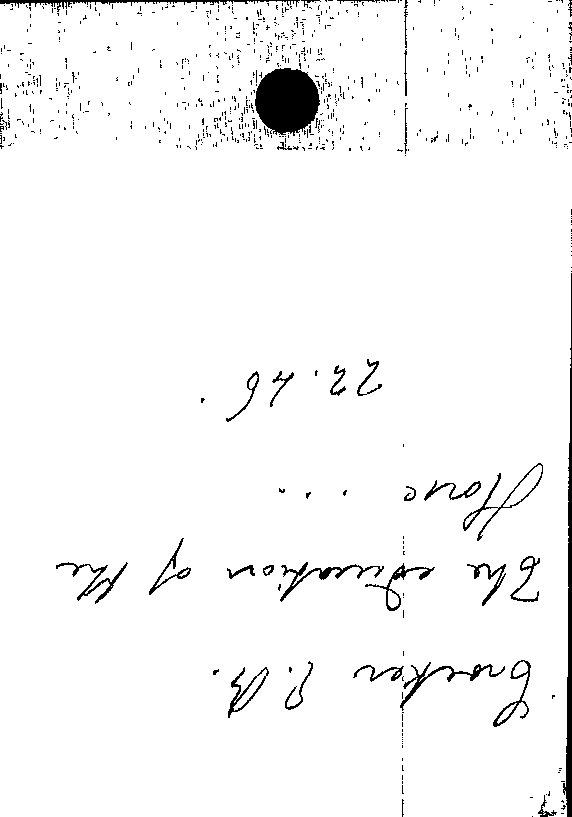 Crocker P. B.
The education of the
Horse ...
22.46.